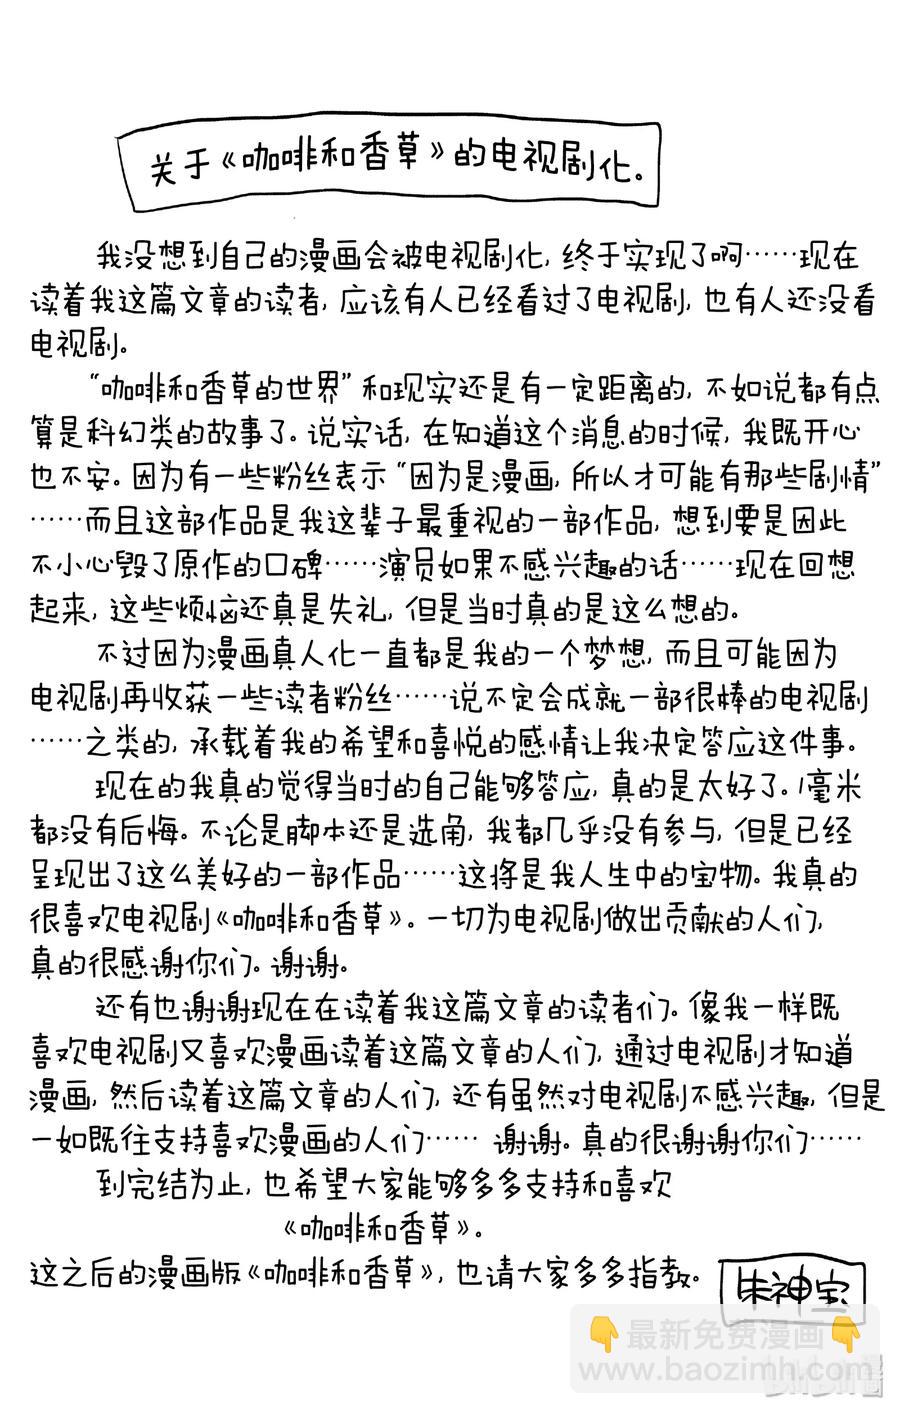 关于《咖啡和香草》的电视剧化。
我没想到自己的漫画会被电视剧化, 终于实现了啊……现在
读着我这篇文章的读者, 应该有人已经看过了电视剧, 也有人还没看
电视剧。
“咖啡和香草的世界”和现实还是有一定距离的, 不如说都有点
算是科幻类的故事了。说实话, 在知道这个消息的时候, 我既开心
也不安。因为有一些粉丝表示“因为是漫画, 所以才可能有那些剧情”
……而且这部作品是我这辈子最重视的一部作品, 想到要是因此
不小心毁了原作的口碑……演员如果不感兴趣的话……现在回想
起来, 这些烦恼还真是失礼, 但是当时真的是这么想的。
不过因为漫画真人化一直都是我的一个梦想, 而且可能因为
电视剧再收获一些读者粉丝……说不定会成就一部很棒的电视剧
……之类的, 承载着我的希望和喜悦的感情让我决定答应这件事。
现在的我真的觉得当时的自己能够答应, 真的是太好了。1毫米
都没有后悔。不论是脚本还是选角, 我都几乎没有参与, 但是已经
呈现出了这么美好的一部作品……这将是我人生中的宝物。我真的
很喜欢电视剧《咖啡和香草》。一切为电视剧做出贡献的人们,
真的很感谢你们。谢谢。
还有也谢谢现在在读着我这篇文章的读者们。像我一样既
喜欢电视剧又喜欢漫画读着这篇文章的人们, 通过电视剧才知道
漫画, 然后读着这篇文章的人们, 还有虽然对电视剧不感兴趣, 但是
一如既往支持喜欢漫画的人们…… 谢谢。真的很谢谢你们……
到完结为止, 也希望大家能够多多支持和喜欢
《咖啡和香草》。
这之后的漫画版《咖啡和香草》, 也请大家多多指教。
朱神宝
👇最新免费漫画👇
www.baozimh.com